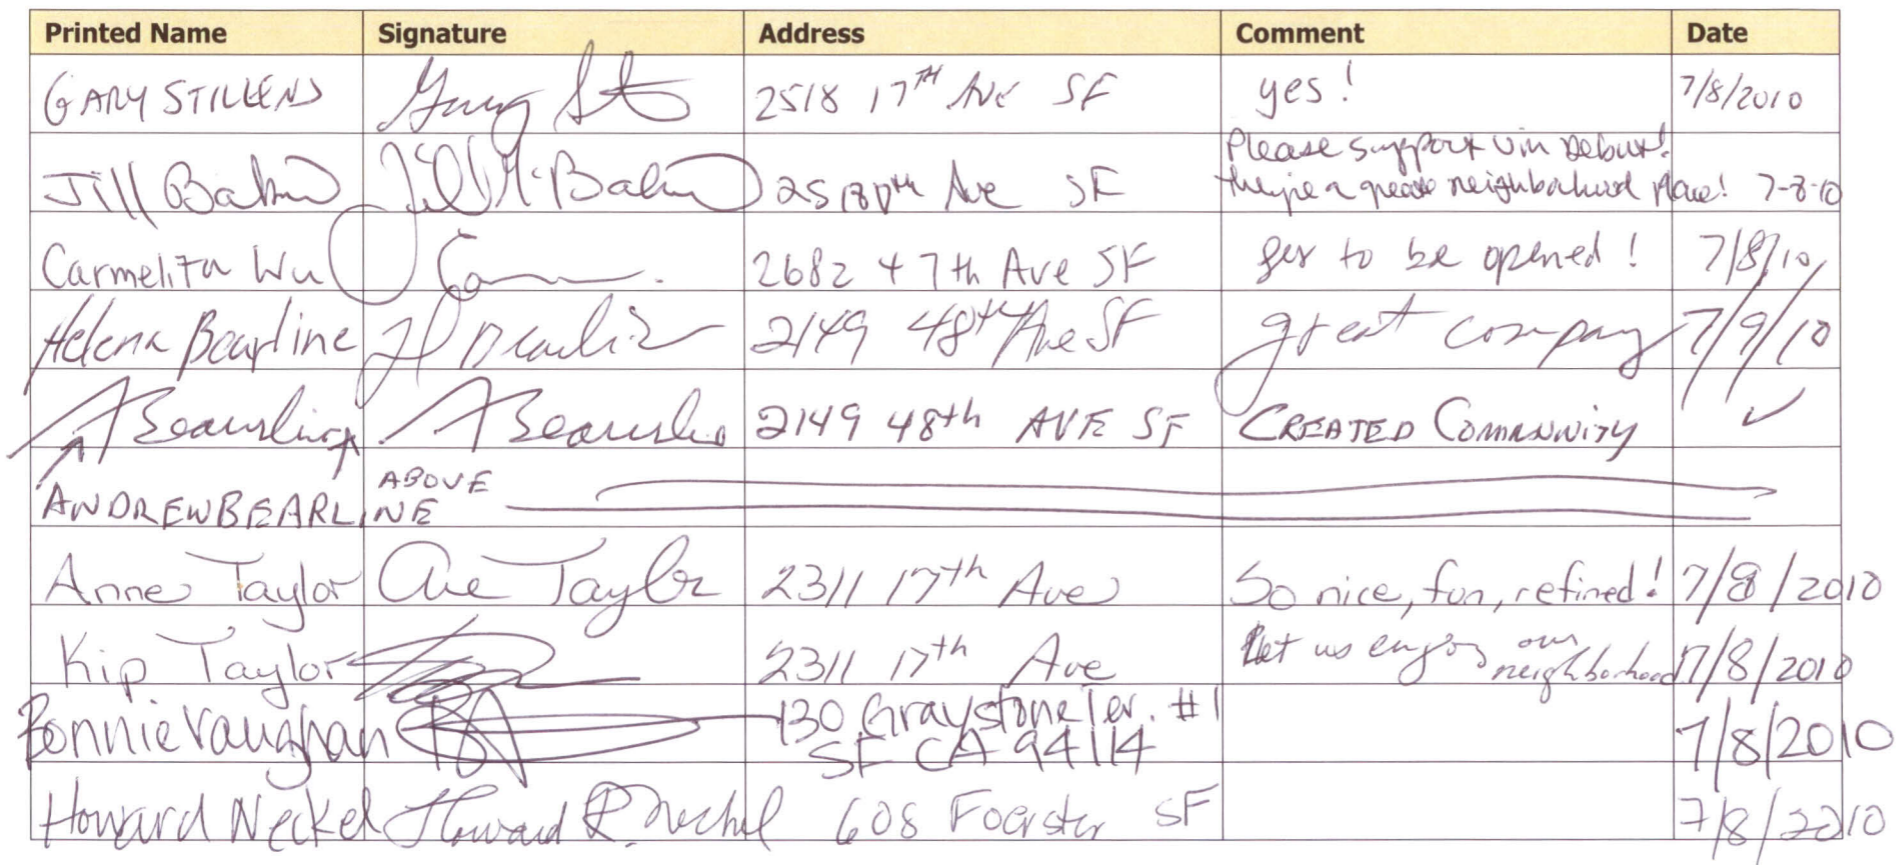 Printed Name Signature Address Comment Date
GARY STILLENS Gary St 2518 17TH Ave SF yes! 7/8/2010
Please support Vin Debut!
Jill Jill McBa Ave SF they're a great neighborhood place! 7-8-10
Carmelita Wu 2682 47th Ave SF to be opened! 7/8/10
Helena Bearline 2149 48th Ave SF great company 7/9/10
A Bearline A 2149 48th AVE SF CREATED COMMUNITY ✓
ABOVE
ANDREW BEARLINE
Anne Taylor Anne Taylor 2311 17th Ave So nice, fun, refined! 7/8/2010
Kip Taylor 2311 17th Ave Let us enjoy our neighborhood 7/8/2010
Bonnie Vaughan 130 Graystone Ter. #1
SF CA 94114 7/8/2010
Howard Neckel Howard R. Neckel 608 Foerster SF 7/8/2010